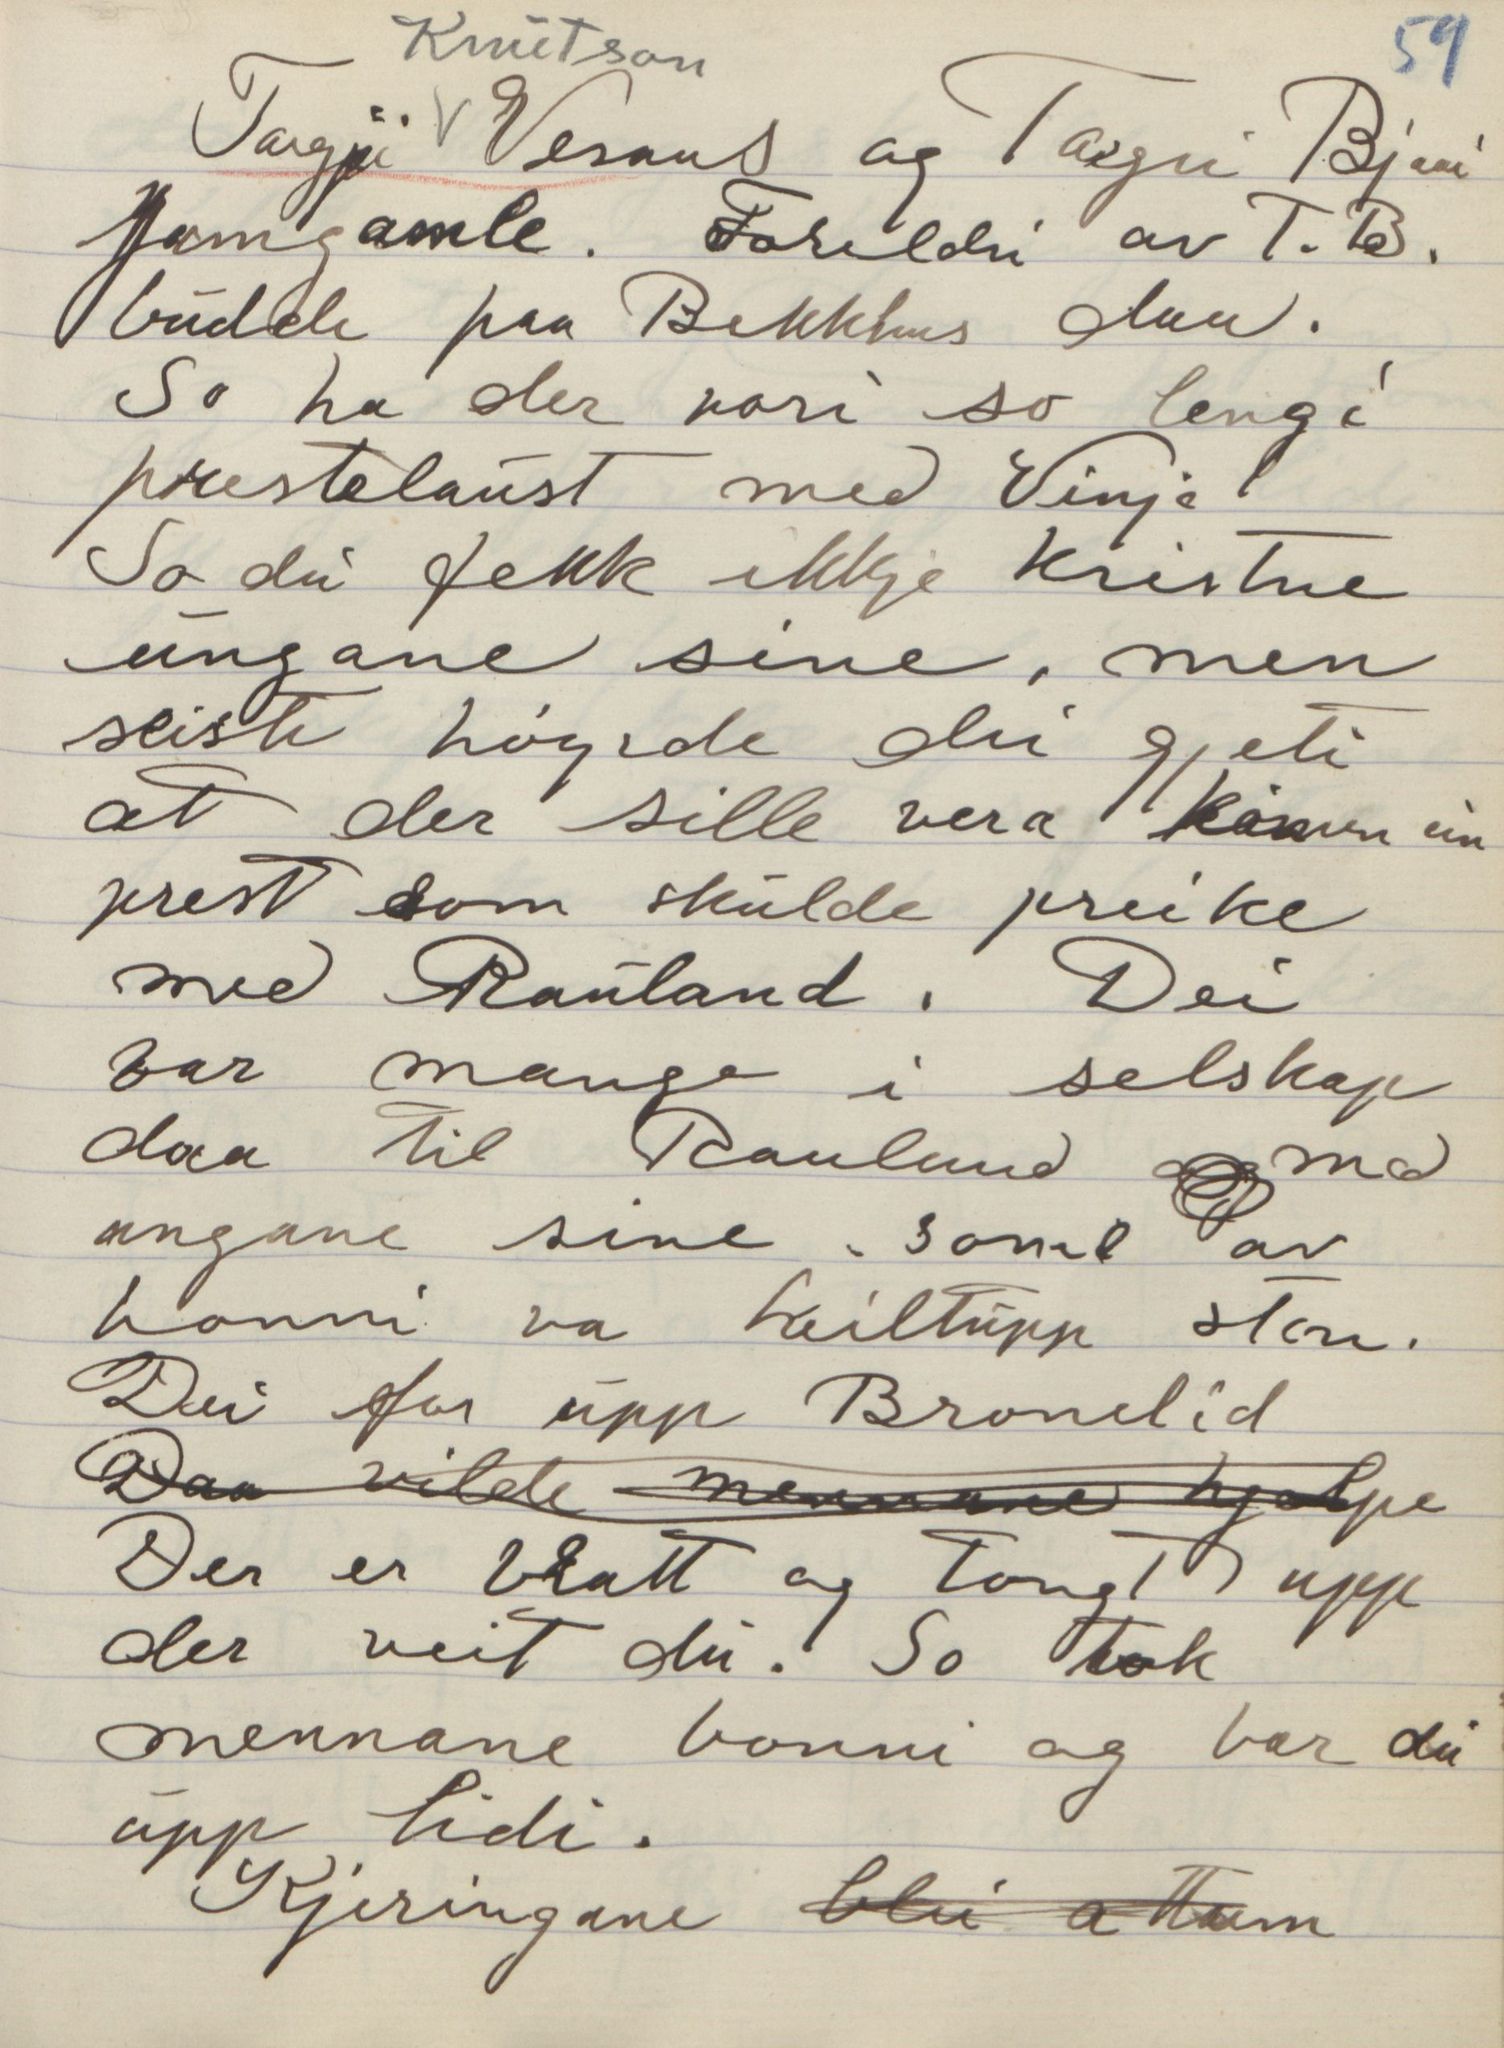 59
Knutson
Targjei Vesaus og Targei Bjaai
jamgamle. Foreldri av T. B.
budde paa Bekkhus daa.
So ha der vori so lengi
prestelaust med Vinje
So dei fekk ikkje kristne
ungane sine, men
seist høyrde dei gjeti
at der sille vera komen ein
prest som skulde preike
med Rauland. Dei
var mange i selskap
daa til Rauland med
ungane sine. Some av
bonni va heiltupp stor.
Dei for upp Bronelid
Daa vilde mennane hjelpe
Der er bratt og tongt upp
der veit du. So tok
mennane bonni og bar dei
upp lidi.
Kjeringane blei attum